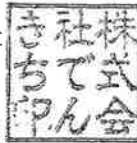 株式会
社でん
きち印